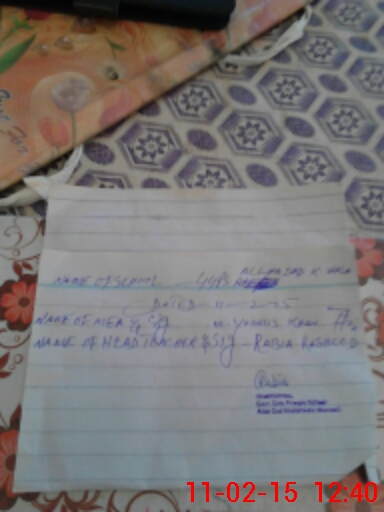 ALLAHDAD K WALA
NAME OF SCHOOL — GGPS
DATED 11-2-15
NAME OF MEA & Sig M. YOUNUS KHAN
NAME OF HEAD TEACHER & Sig — RABIA RASHEED
Rabia
Govt. Girls Primary School
11-02-15 12:40